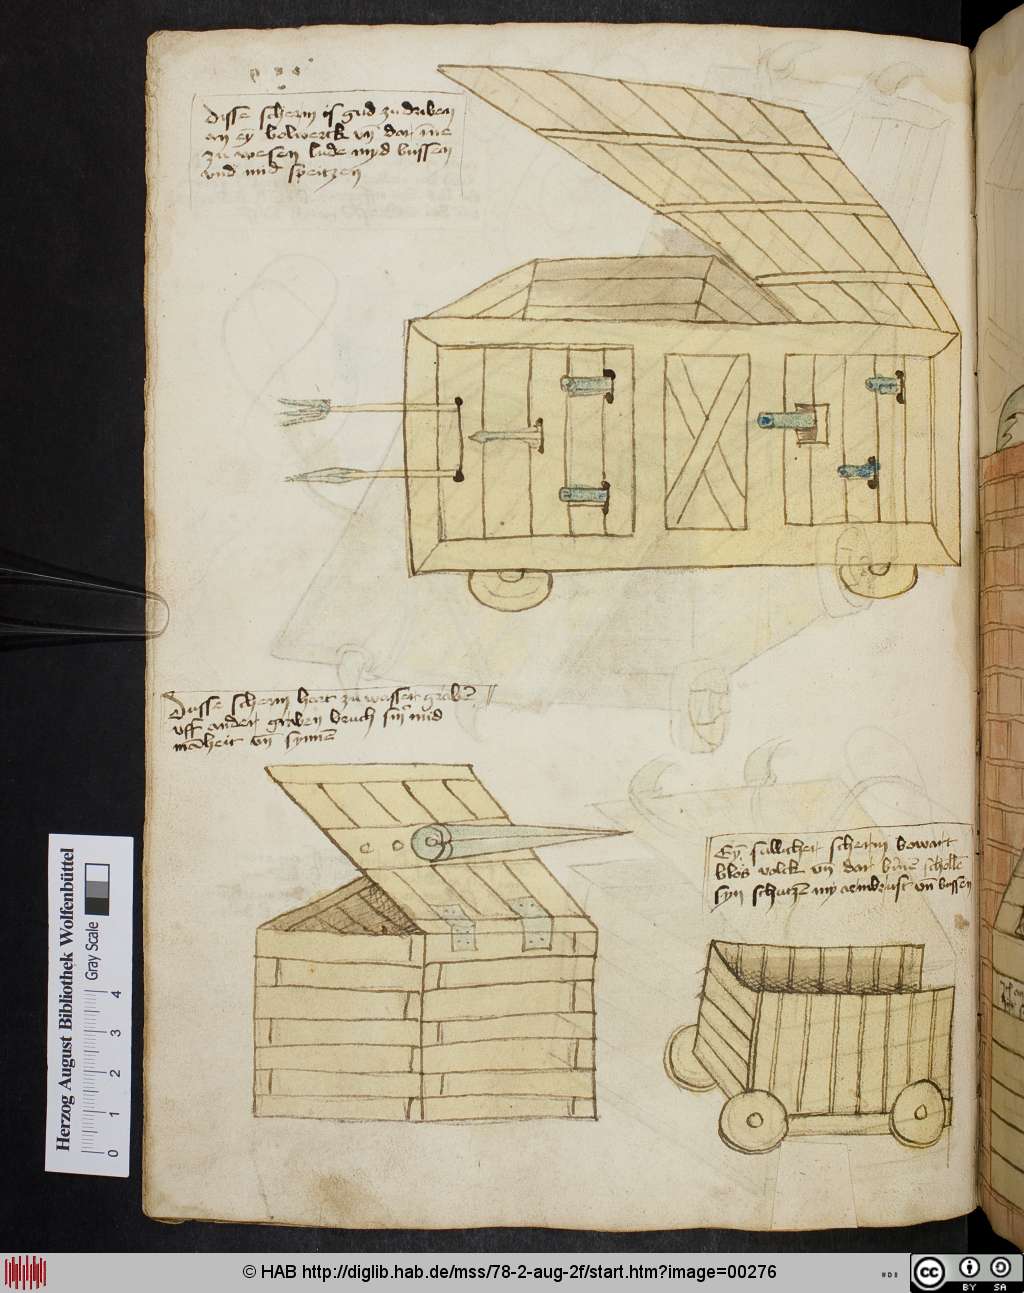 Disse scherm is gud zu driben
an ey bolwerck vn dar ine
zu wesen lude myd bussen
vnd mid speitzen
Dusse scherm hort zu wasser grab
vff ander graben bruch sin mid
manheit vn synne
Ey sullicher scherm bowart
blos volck vn dar
syn schutz my armbrust vn bussen
Herzog August Bibliothek Wolfenbüttel
Gray Scale
0 1 2 3 4
© HAB http://diglib.hab.de/mss/78-2-aug-2f/start.htm?image=00276
cc BY SA